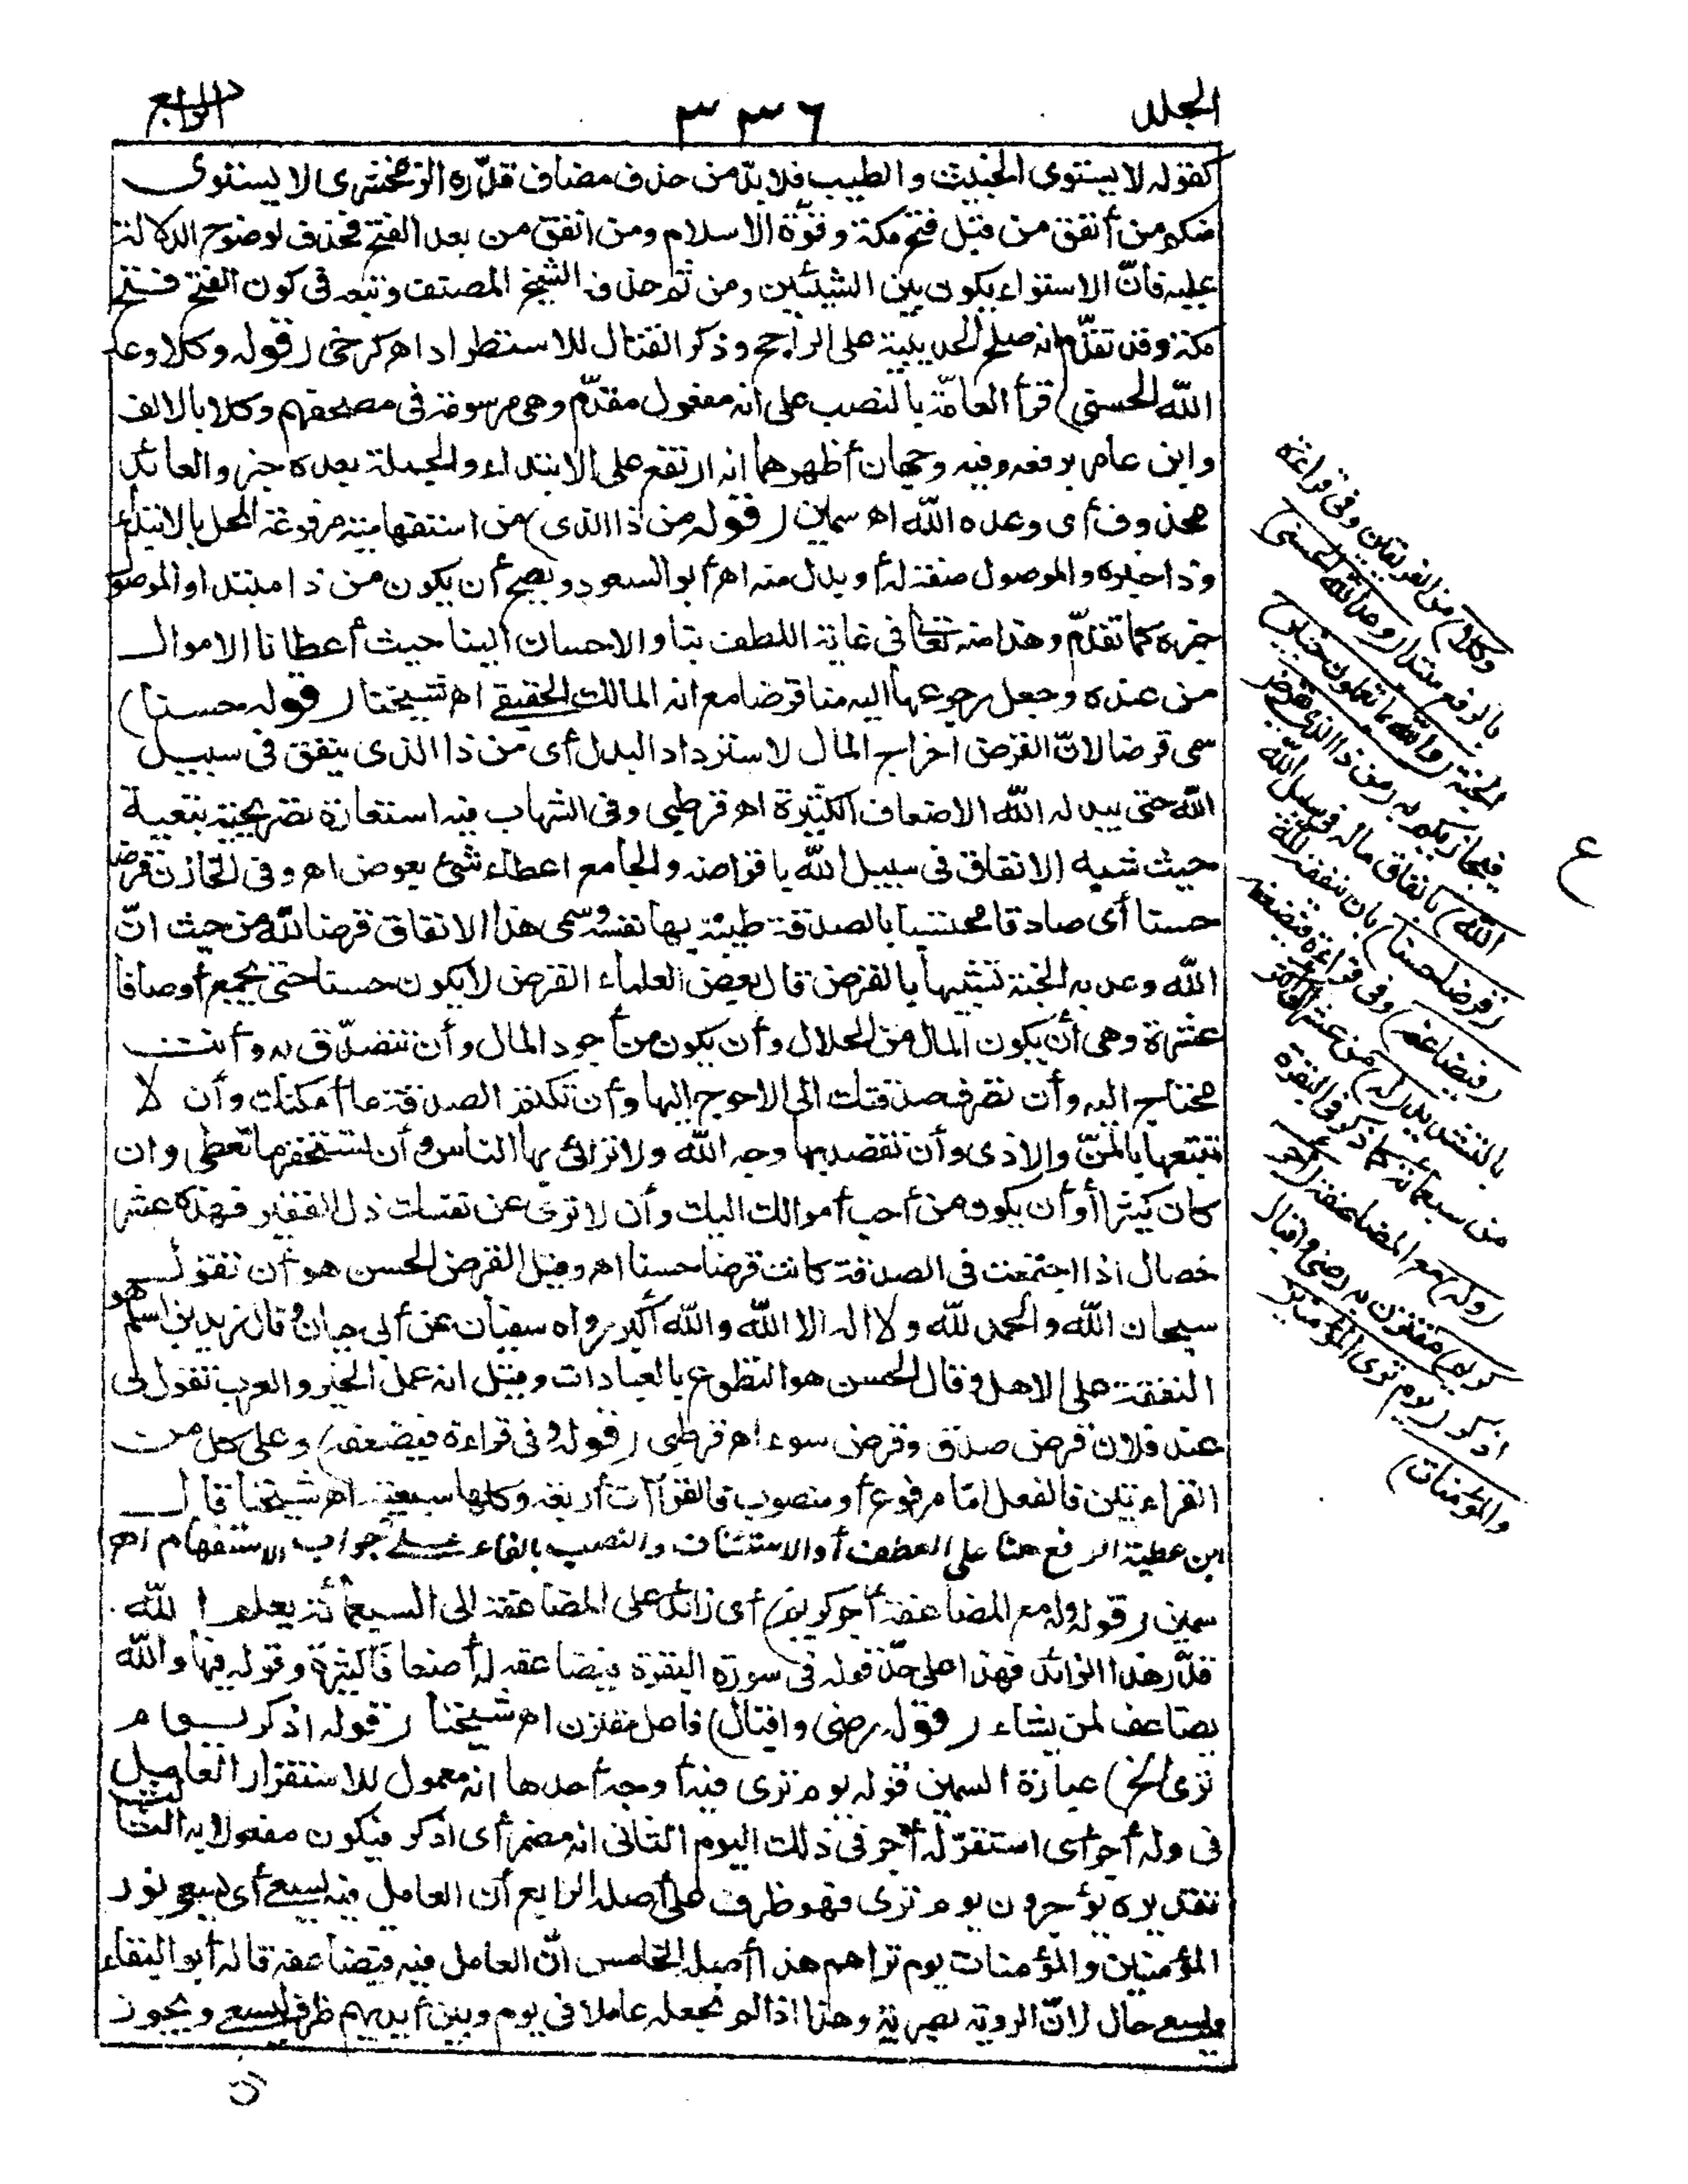 المجلد
٣٣٦
الرابع
كقوله لا يستوى الخبيث والطيب فلا بدّ من حذف مضاف قدّره الزمخشرى لا يستوى
منكم من أنفق من قبل فتح مكة وقوّة الاسلام ومن انفق من بعد الفتح فحذف لوضوح الدلالة
عليه فانّ الاستواء يكون بين الشيئين ومن ثم حذفه الشيخ المصنف وتبعه فى كون الفتح فتح
مكة وقد تقدّم انه صلح الحديبية على الراجح وذكر القتال للاستطراد اه كرخى (قوله وكلا وعد
الله الحسنى) قرأ العامّة بالنصب على انه مفعول مقدّم وهى مرسومة فى مصحفهم وكلا بالالف
وابن عامر برفعه وفيه وجهان أظهرهما انه ارتفع على الابتداء والجملة بعده خبر والعائد
محذوف أى وعده الله اه سمين (قوله من ذا الذى) من استفهامية مرفوعة المحل بالابتداء
وذا خبره والموصول صفة له أو بدل منه اه أبو السعود ويصح أن يكون من ذا مبتدا والموصول
خبره كما تقدّم وهذا منه تعالى فى غاية اللطف بنا والاحسان الينا حيث أعطانا الاموال
من عنده وجعل رجوعها اليه منا قرضا مع انه المالك الحقيقى اه شيخنا (قوله حسنا)
سمى قرضا لانّ القرض اخراج المال لاسترداد البدل أى من ذا الذى ينفق فى سبيل
الله حتى يبدله الله الاضعاف الكثيرة اه قرطبى وفى الشهاب فيه استعارة تصريحية تبعية
حيث شبه الانفاق فى سبيل الله باقراضه والجامع اعطاء شئ بعوض اه وفى الخازن قرضا
حسنا أى صادقا محتسبا بالصدقة طيبة بها نفسه وسمى هذا الانفاق قرضا لله من حيث انّ
الله وعد به الجنة تشبيها بالقرض قال بعض العلماء القرض لا يكون حسنا حتى يجمع أوصافا
عشرة وهى أن يكون المال من الحلال وأن يكون من أجود المال وأن تتصدّق به وأنت
محتاج اليه وأن تصرف صدقتك الى الاحوج اليها وأن تكتم الصدقة ما أمكنك وأن لا
تتبعها بالمنّ والاذى وأن تقصد بها وجه الله ولا ترائى بها الناس وأن تستحقر ما تعطى وان
كان كثيرا وأن يكون من أحب أموالك اليك وأن لا ترى عز نفسك وذل الفقير فهذه عشر
خصال اذا اجتمعت فى الصدقة كانت قرضا حسنا اه وقيل القرض الحسن هو أن تقول
سبحان الله والحمد لله ولا اله الا الله والله أكبر رواه سفيان عن أبى حيان وقال زيد بن اسلم هو
النفقة على الاهل وقال الحسن هو التطوع بالعبادات وقيل انه عمل الخير والعرب تقول لى
عند فلان قرض صدق وقرض سوء اه قرطبى (قوله وفى قراءة فيضعفه) وعلى كل من
القراءتين فالفعل امّا مرفوع أو منصوب فالقراآت أربعة وكلها سبعية اه شيخنا قال
ابن عطية الرفع هنا على العطف أو الاستئناف والنصب بالفاء على جواب الاستفهام اه
سمين (قوله وله مع المضاعفة أجر كريم) أى زائد على المضاعفة الى السبعمائة يعلم الله
قدر هذا الزائد فهذا على حدّ قوله فى سورة البقرة فيضاعفه له أضعافا كثيرة وقوله فيها والله
يضاعف لمن يشاء (قوله رضى واقبال) فاعل مقترن اه شيخنا (قوله اذكر يوم
ترى الخ) عبارة السمين قوله يوم ترى فيه أوجه أحدها انه معمول للاستقرار العامل
فى وله أجر أى استقرّ له أجر فى ذلك اليوم الثانى انه مضمر أى اذكر فيكون مفعولا به الثالث
تقديره يؤجرون يوم ترى فهو ظرف على أصله الرابع أن العامل فيه يسعى أى يسعى نور
المؤمنين والمؤمنات يوم تراهم هذا أصله الخامس انّ العامل فيه فيضاعفه قاله أبو البقاء
ويسعى حال لانّ الرؤية بصرية وهذا اذا لم نجعله عاملا فى يوم وبين أيديهم ظرف ليسعى ويجوز
وكلا) من الفريقين وفى قراءة
بالرفع مبتدا (وعد الله الحسنى)
الجنة (والله بما تعملون خبير)
فيجازيكم به (من ذا الذى يقرض
الله) بانفاق ماله فى سبيل الله
(قرضا حسنا) بان ينفقه لله
(فيضاعفه) وفى قراءة فيضعفه
بالتشديد (له) من عشر الى أكثر
من سبعمائة كما ذكر فى البقرة
(وله) مع المضاعفة (أجر
كريم) مقترن به رضى واقبال
اذكر (يوم ترى المؤمنين
والمؤمنات)
ع